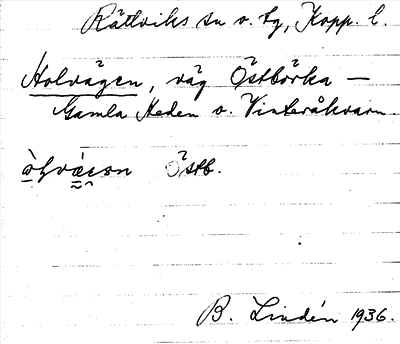 Rättviks sn o. tg, Kopp. l.
Holvägen, väg Östbörka —
Gamla Heden o. Vinteråkvarn.
Östb.
B. Lindén 1936.